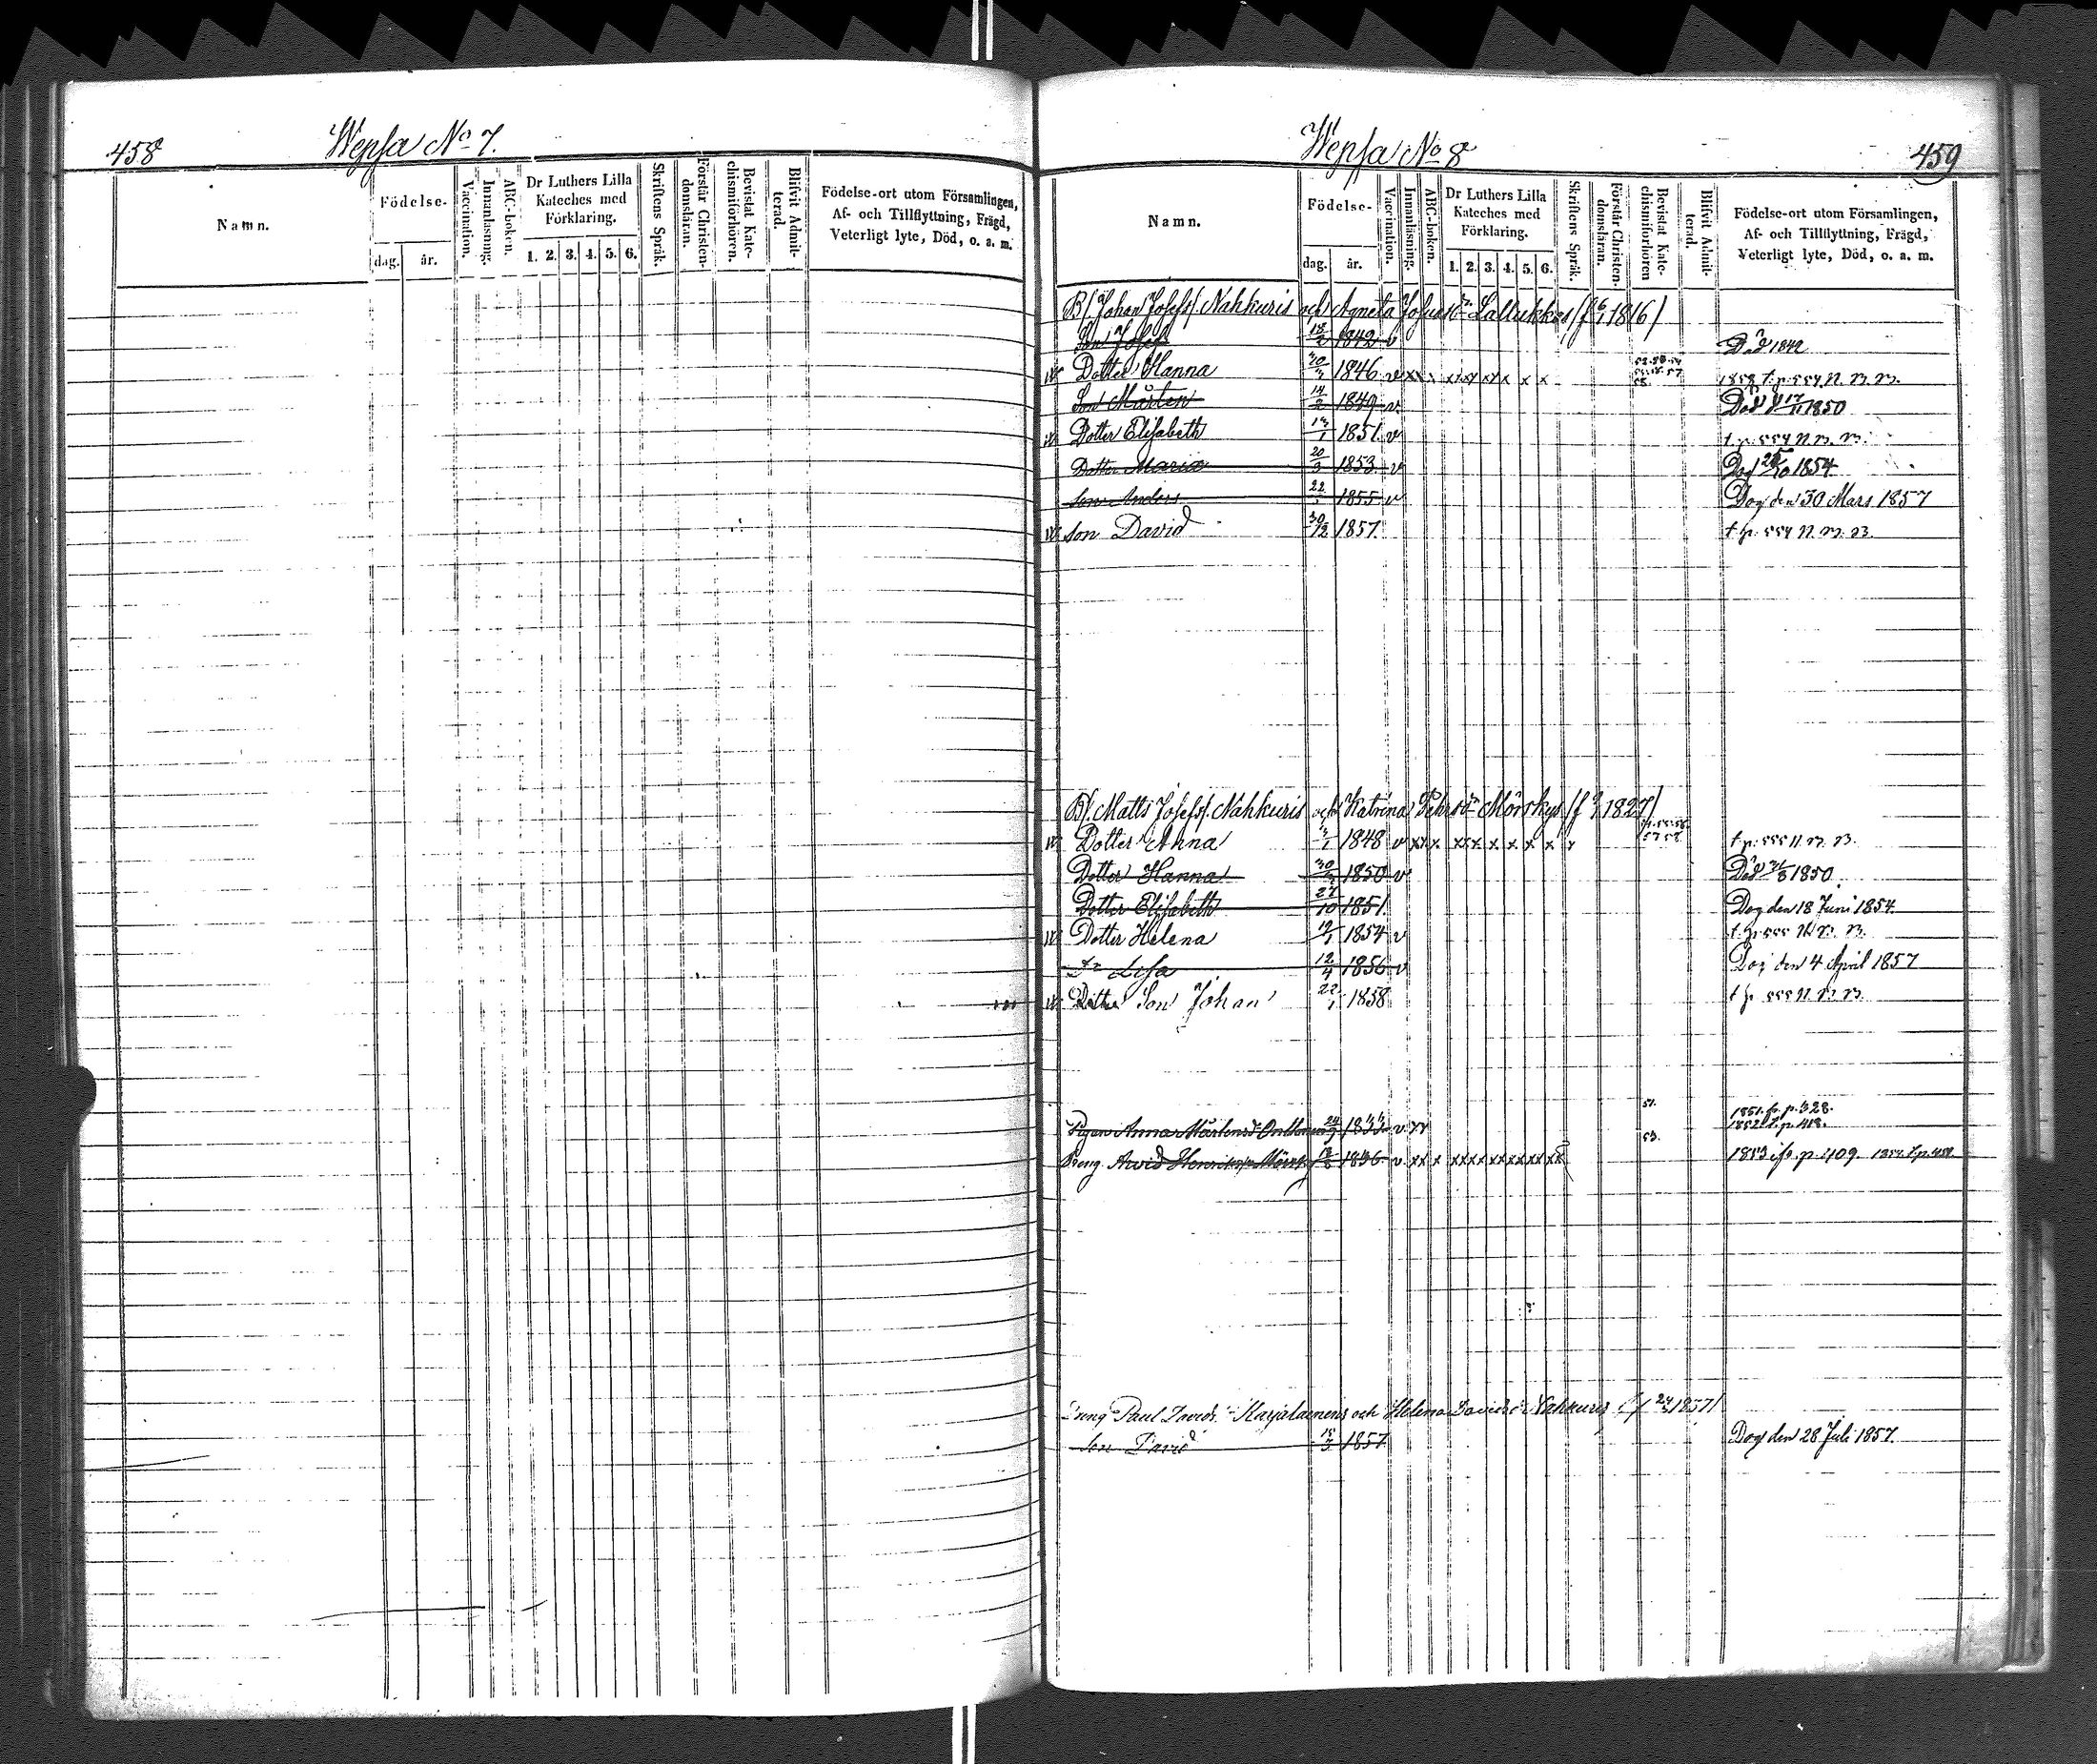 458
Wepsa No 7.
Namn.
Födelse-
dag.
år.
Vaccination.
Innanläsning.
ABC-boken.
Dr Luthers Lilla
Kateches med
Förklaring.
1. 2. 3. 4. 5. 6.
Skriftens Språk.
Förstår Christen-
domsläran.
Bevistat Kate-
chismiförhören.
Blifvit Admit-
terad.
Födelse-ort utom Församlingen,
Af- och Tillflyttning, Frägd,
Veterligt lyte, Död, o. a. m.
Wepsa No 8
459
Namn.
Födelse-
dag.
år.
Vaccination.
Innanläsning.
ABC-boken.
Dr Luthers Lilla
Kateches med
Förklaring.
1. 2. 3. 4. 5. 6.
Skriftens Språk.
Förstår Christen-
domsläran.
Bevistat Kate-
chismiförhören
Blifvit Admit-
terad.
Födelse-ort utom Församlingen,
Af- och Tillflyttning, Frägd,
Veterligt lyte, Död, o. a. m.
B/. Johan Josefs/. Nahkuris och Agneta Lallukka 1816/
Son Josef 1842 v Död 1842
Dotter Hanna 1846 v xx x x x 1858 t. p. 554 N. B. B.
Son Mårten 14/2 1849 v Död 1850
Dotter Elisabeth 1851 v t. p. 554 N. B. B.
Dotter Maria 20/3 1853 v Dog 1854
Son Anders 22 1855 v Dog den 30 Mars 1857
Son David 30/12 1857 t. p. 554 N. B. B.
B/. Matts Josefs/. Nahkuris och Katrina Pehrsdr Mörskys 1827/
Dotter Anna 1848 v xx x xxx x x x x x t. p. 555 N. B. B.
Dotter Hanna 30 1850 v Död 1850
Dotter Elisabeth 27/10 1851 Dog den 18 Juni 1854.
Dotter Helena 1854 v t. p. 555 N. B. B.
Dr Lisa 12/4 1856 v Dog den 4 April 1857
Dotter Son Johan 22/1 1858 t. p. 555 N. B. B.
51. 1851. fr. p. 328.
Pigan Anna Mårtensd 1833 v 1852 t. p. 418.
53.
Dreng Arvid Henriks 1836 v xx x xxxxxxxxxx 1853 ifr. p. 409. 1854. t. p.
Dreng Paul Davids. Karjalainens och Helena Davidsdr Nahkuris 1857/
Son David 15/3 1857 Dog den 28 Juli 1857.